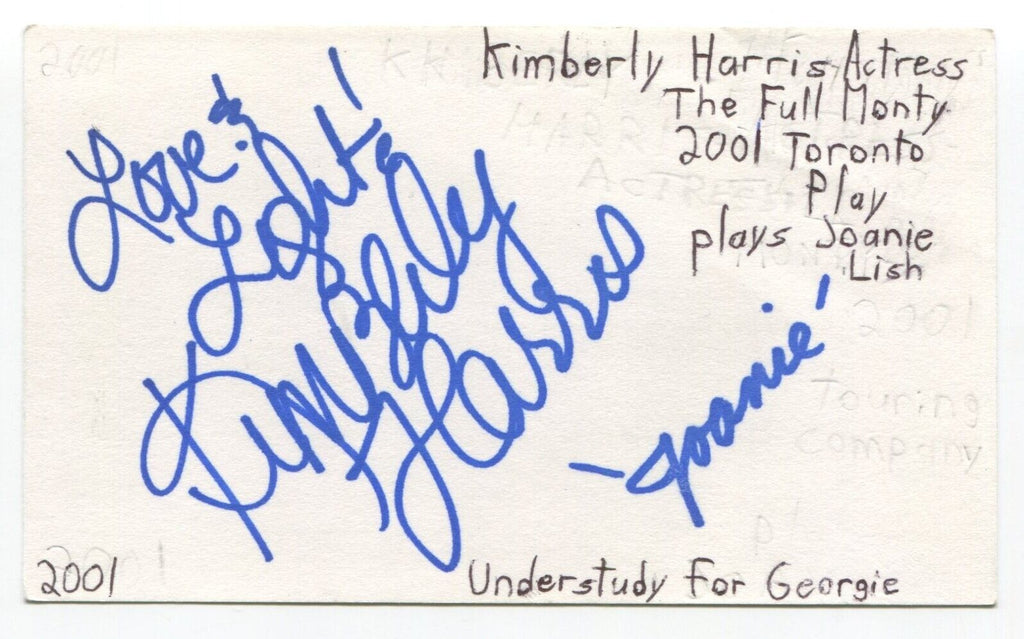 Kimberly Harris Actress
The Full Monty
2001 Toronto
Play
plays Joanie
Lish
Love &
Light!
Kimberly
Harris
- Joanie'
2001
Understudy For Georgie
2001
Touring
Company